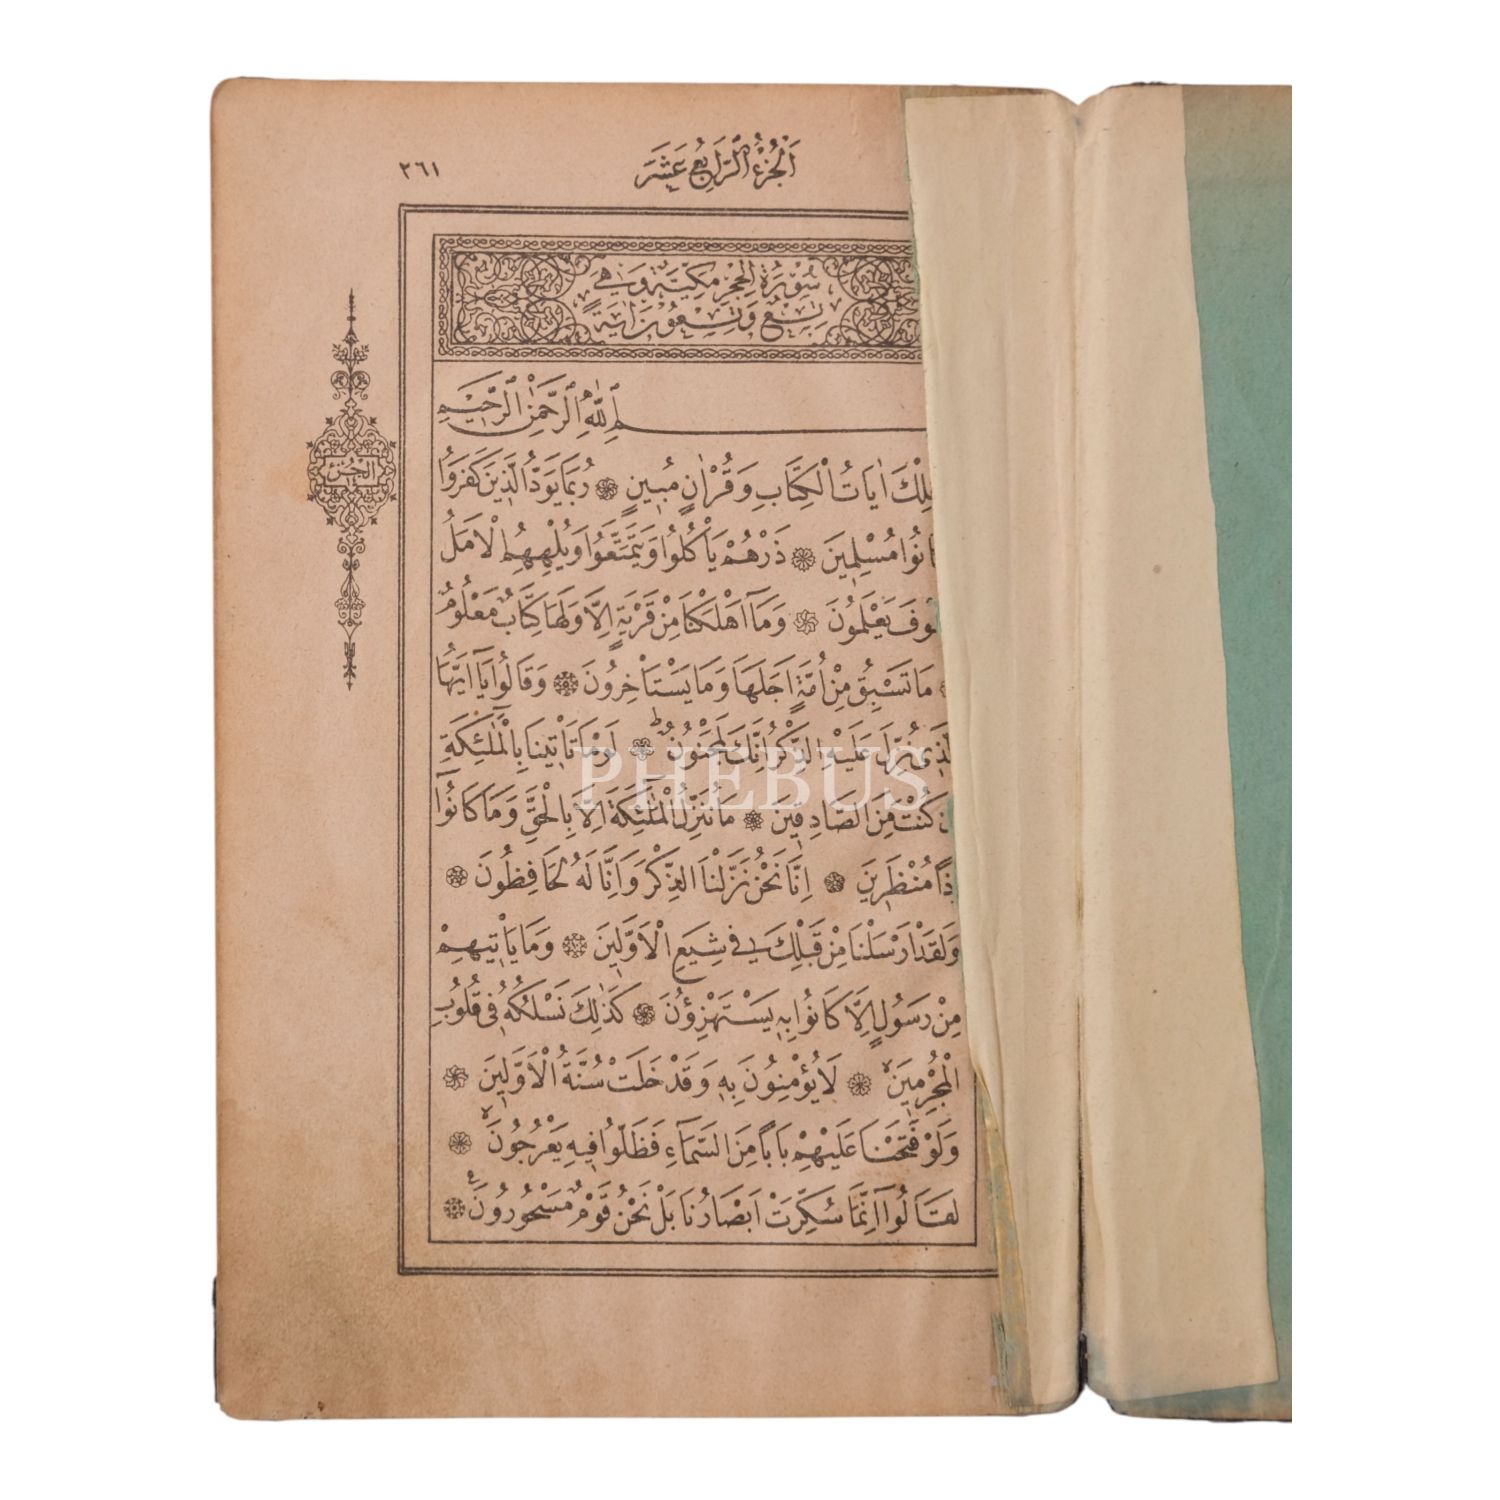 اَلْجُزْءُ الرَّابِعُ عَشَرَ
٢٦١
سُورَةُ الْحِجْرِ مَكِّيَّةٌ وَهِيَ
تِسْعٌ وَتِسْعُونَ اٰيَةً
اللّٰهِ الرَّحْمٰنِ الرَّحِيمِ
تِلْكَ اٰيَاتُ الْكِتَابِ وَقُرْاٰنٍ مُبِينٍ ۞ رُبَمَا يَوَدُّ الَّذِينَ كَفَرُوا
كَانُوا مُسْلِمِينَ ۞ ذَرْهُمْ يَأْكُلُوا وَيَتَمَتَّعُوا وَيُلْهِهِمُ الْاَمَلُ
يَعْلَمُونَ ۞ وَمَٓا اَهْلَكْنَا مِنْ قَرْيَةٍ اِلَّا وَلَهَا كِتَابٌ مَعْلُومٌ
مَا تَسْبِقُ مِنْ اُمَّةٍ اَجَلَهَا وَمَا يَسْتَأْخِرُونَ ۞ وَقَالُوا يَٓا اَيُّهَا
الَّذِي نُزِّلَ عَلَيْهِ الذِّكْرُ اِنَّكَ لَمَجْنُونٌ ۞ لَوْ مَا تَأْتِينَا بِالْمَلٰٓئِكَةِ
كُنْتَ مِنَ الصَّادِقِينَ ۞ مَا نُنَزِّلُ الْمَلٰٓئِكَةَ اِلَّا بِالْحَقِّ وَمَا كَانُٓوا
اِذًا مُنْظَرِينَ ۞ اِنَّا نَحْنُ نَزَّلْنَا الذِّكْرَ وَاِنَّا لَهُ لَحَافِظُونَ ۞
وَلَقَدْ اَرْسَلْنَا مِنْ قَبْلِكَ فِي شِيَعِ الْاَوَّلِينَ ۞ وَمَا يَأْتِيهِمْ
مِنْ رَسُولٍ اِلَّا كَانُوا بِهِ يَسْتَهْزِؤُنَ ۞ كَذٰلِكَ نَسْلُكُهُ فِي قُلُوبِ
الْمُجْرِمِينَ ۞ لَا يُؤْمِنُونَ بِهِ وَقَدْ خَلَتْ سُنَّةُ الْاَوَّلِينَ ۞
وَلَوْ فَتَحْنَا عَلَيْهِمْ بَابًا مِنَ السَّمَٓاءِ فَظَلُّوا فِيهِ يَعْرُجُونَ ۞
لَقَالُٓوا اِنَّمَا سُكِّرَتْ اَبْصَارُنَا بَلْ نَحْنُ قَوْمٌ مَسْحُورُونَ ۞
PHEBUS